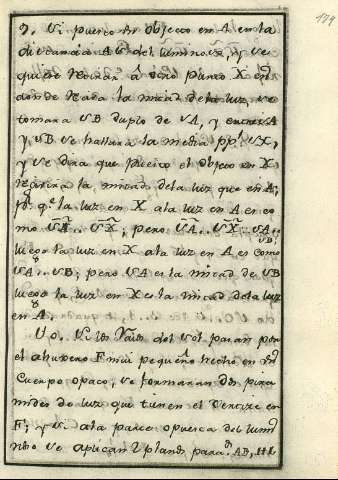 179
7. Si puesto un objeto en A en la
distancia AS del luminoso, y se
quiere reducir â otro punto X en
donde reciva la mitad de la luz, se
tomara SB duplo de SA, y entre SA
y SB se hallara la media pp.l SX,
y se dira que puesto el objeto en X
recivira la mitad de la luz que en A;
p.r q.e la luz en X a la luz en A es co
mo SA .. SX; pero SA .. SX :: SA ..
SB;
luego la luz en X a la luz en A es como
SA .. SB; pero SA es la mitad de SB
luego la luz en X es la mitad de la luz
en A.
Si los Raios del Sol pasan por
el ahujero F mui pequeño hecho en un
Cuerpo opaco, se formaran dos pira
mides de luz que tienen el Vertize en
F; y si a la parte opuesta del lumi
noso se aplican 2 planos para.s AB, HL